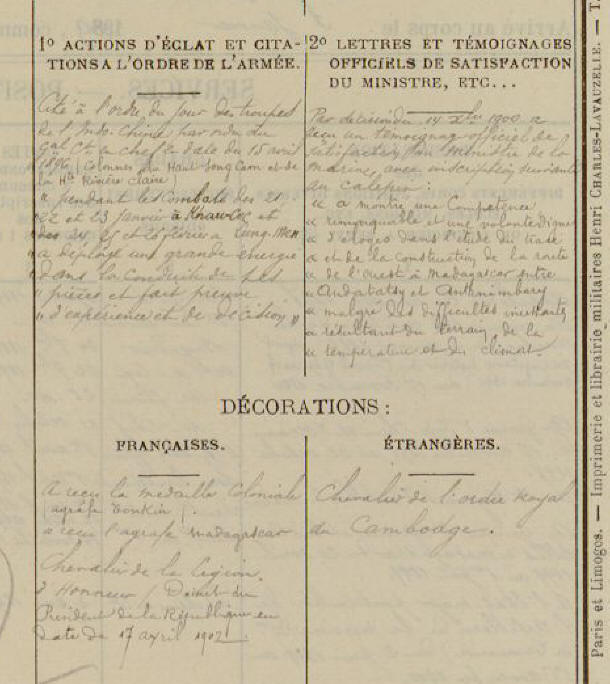 1º ACTIONS D'ÉCLAT ET CITA-
TIONS A L'ORDRE DE L'ARMÉE.
Cité à l'ordre du jour des troupes
de l'Indo-Chine par ordre du
Gal Ct en chef en date du 15 avril
1896 (Colonnes du Haut Song Cam et de
la Hte Rivière claire)
" pendant les combats des 21
22 et 23 janvier à et
des 24 25 et 26 février à Lung-Men
" a déployé une grande énergie
" dans la conduite de ses
" pièces et fait preuve
" d'expérience et de décision "
2º LETTRES ET TÉMOIGNAGES
OFFICIELS DE SATISFACTION
DU MINISTRE, ETC...
Par décision du 14 Xbre 1900 a
reçu un témoignage officiel de
satisfaction du Ministre de la
marine, avec inscription suivante
au calepin :
" a montré une compétence
" remarquable et une volonté digne
" d'éloges dans l'étude du tracé
" et de la construction de la route
" de l'ouest à Madagascar entre
" et
" malgré les difficultés
" résultant du terrain, de la
" température et du climat.
DÉCORATIONS :
FRANÇAISES.
A reçu la médaille coloniale
agrafe Tonkin.
a reçu l'agrafe Madagascar
Chevalier de la Légion
d'Honneur / Décret du
Président de la République en
date du 17 avril 1902
ÉTRANGÈRES.
Chevalier de l'ordre royal
du Cambodge.
Paris et Limoges. — Imprimerie et librairie militaires Henri CHARLES-LAVAUZELLE. —